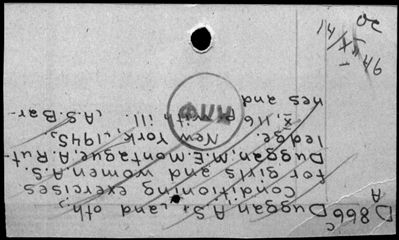 D 866 c
A
Duggan A.S., and oth.
Conditioning exercises
for girls and women. A.S.
Duggan, M.E. Montague, A. Rut-
ledge. New York, 1945,
X, 116 p. with ill. (A.S. Bar-
nes and
20